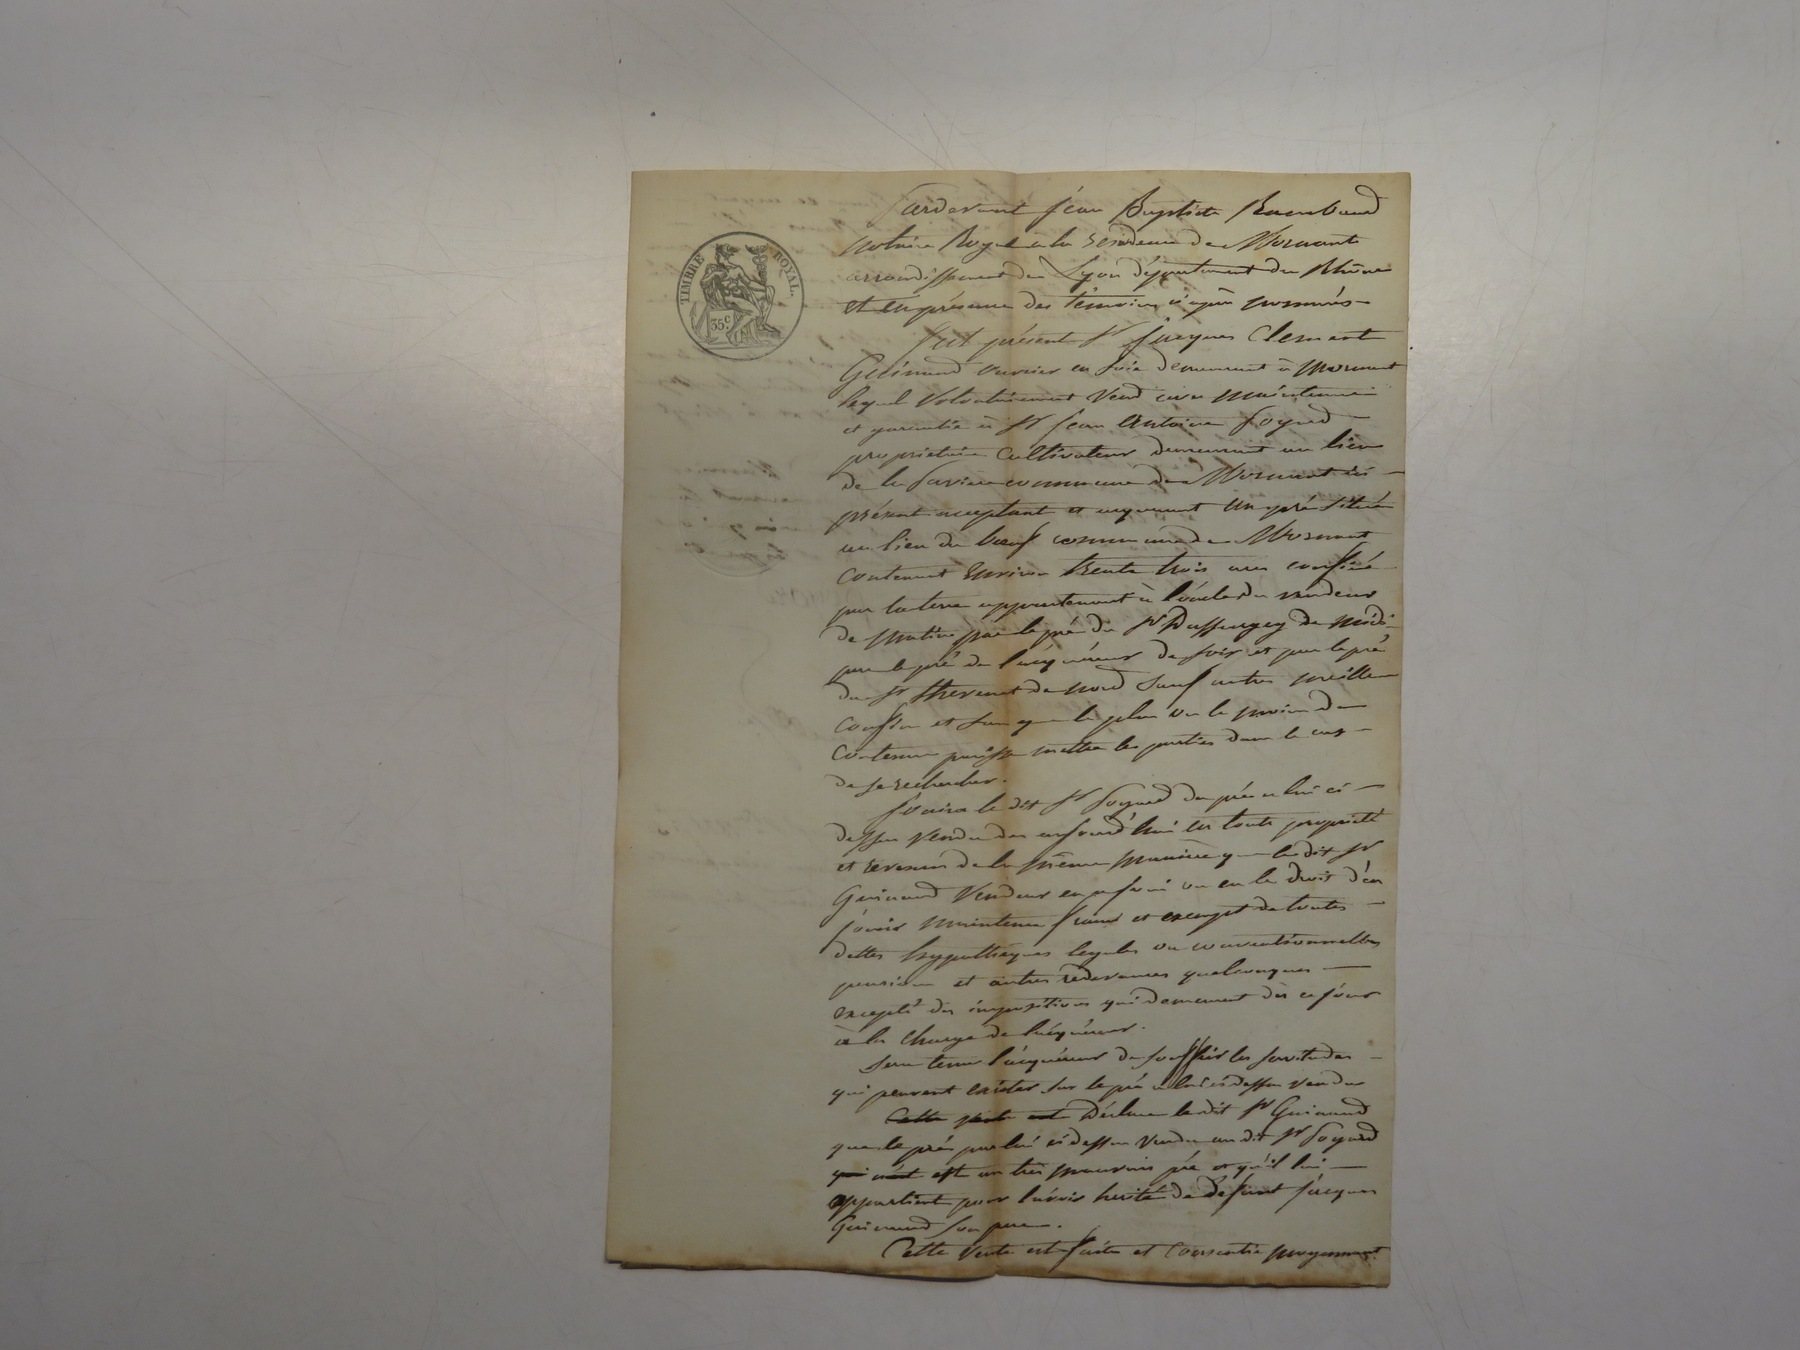 TIMBRE ROYAL.
35 c.
Pardevant Jean Baptiste Raimbaud
Notaire Royal à la résidence de Mornant
arrondissement de Lyon département du Rhône
et en présence des témoins ci après nommés
fut présent Sr Jacques Clement
Guinand ouvrier en soie demeurant à Mornant
lequel volontairement vend avec maintenue
et garantie à Sr Jean Antoine Goyard
propriétaire cultivateur demeurant au lieu
de la commune de Mornant ici
présent acceptant et acquérant un pré situé
au lieu du boeuf commune de Mornant
contenant environ trente trois ares confiné
par la terre appartenant à l'oncle du vendeur
de matin par le pré du Sr de midi
par le pré de l'acquéreur de soir et par le pré
du Sr Thevenet de nord sauf autres meilleurs
confins et sans que le plus ou le moins de
contenu puisse mettre les parties dans le cas
de se rechercher.
Jouira le dit Sr Goyard du pré a lui ci
dessus vendu des aujourd'hui en toute propriété
et revenus de la même manière que le dit Sr
Guinand vendeur en a joui ou eu le droit d'en
jouir maintenu franc et exempt de toutes
dettes hypothèques légales ou conventionnelles
pensions et autres redevances quelconques
excepté des impositions qui demeurent dès ce jour
à la charge de l'acquéreur.
Sera tenu l'acquéreur de souffrir les servitudes
qui peuvent exister sur le pré a lui ci dessus vendu
Cette vente est Déclare le dit Sr Guinand
que le pré par lui ci dessus vendu au dit Sr Goyard
qui n'est est un très mauvais pré et qu'il lui
appartient pour l'avoir herité de défunt Jacques
Guinand son pere.
Cette vente est faite et consentie moyennant